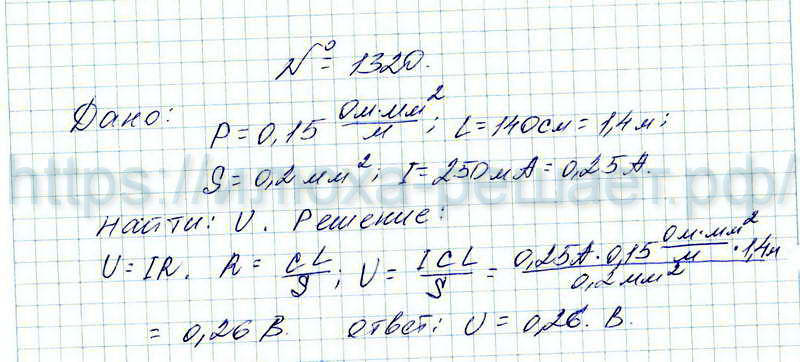 № 1320.
Дано: ρ = 0,15 Ом·мм²/м; L = 140см = 1,4м;
S = 0,2 мм²; I = 250мА = 0,25А.
Найти: U. Решение:
U = IR. R = ρL/S; U = IρL/S = 0,25А · 0,15 Ом·мм²/м · 1,4м / 0,2 мм²
= 0,26 В. Ответ: U = 0,26. В.